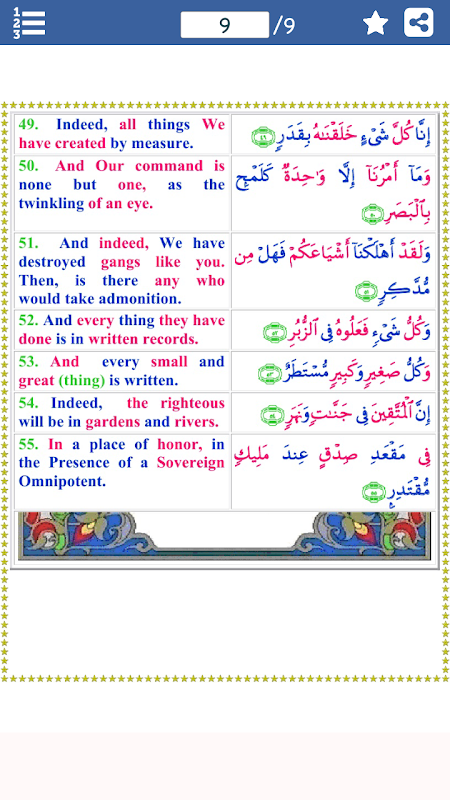 1
2
3
9 /9
49. Indeed, all things We
have created by measure.
إِنَّا كُلَّ شَىْءٍ خَلَقْنَـٰهُ بِقَدَرٍ ٤٩
50. And Our command is
none but one, as the
twinkling of an eye.
وَمَآ أَمْرُنَآ إِلَّا وَٰحِدَةٌ كَلَمْحٍۭ
بِٱلْبَصَرِ ٥٠
51. And indeed, We have
destroyed gangs like you.
Then, is there any who
would take admonition.
وَلَقَدْ أَهْلَكْنَآ أَشْيَاعَكُمْ فَهَلْ مِن
مُّدَّكِرٍ ٥١
52. And every thing they have
done is in written records.
وَكُلُّ شَىْءٍ فَعَلُوهُ فِى ٱلزُّبُرِ ٥٢
53. And every small and
great (thing) is written.
وَكُلُّ صَغِيرٍ وَكَبِيرٍ مُّسْتَطَرٌ ٥٣
54. Indeed, the righteous
will be in gardens and rivers.
إِنَّ ٱلْمُتَّقِينَ فِى جَنَّـٰتٍ وَنَهَرٍ ٥٤
55. In a place of honor, in
the Presence of a Sovereign
Omnipotent.
فِى مَقْعَدِ صِدْقٍ عِندَ مَلِيكٍ
مُّقْتَدِرٍۭ ٥٥